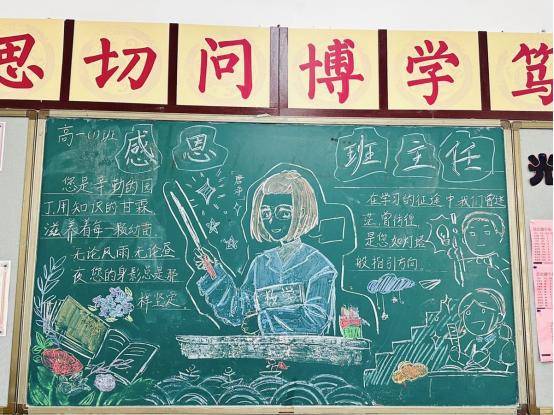 思切问博学笃
高一(4)班
感恩
班主任
您是辛勤的园
丁,用知识的甘霖
滋养着每一棵幼苗
无论风雨无论昼
夜,您的身影总是那
样坚定
在学习的征途中我们曾迷
茫,曾彷徨
是您如灯塔
般指引方向。
数学
光